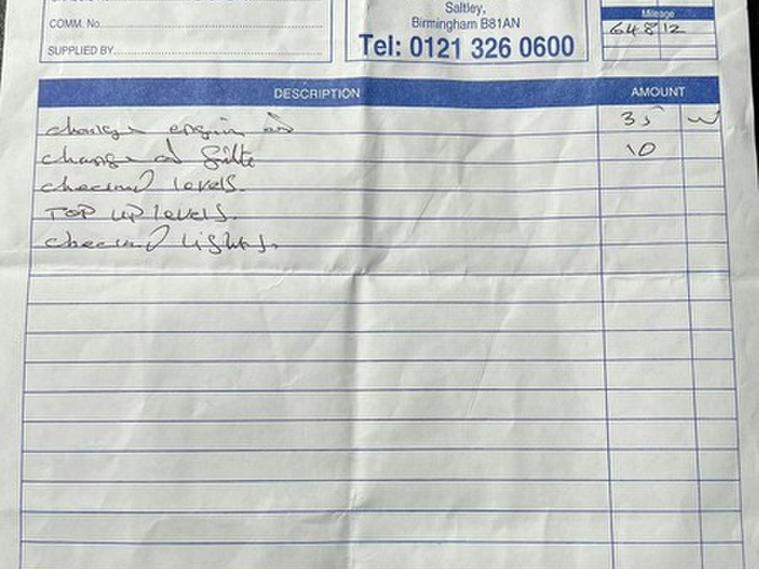 Saltley,
Birmingham B81AN
Tel: 0121 326 0600
Mileage
64812
COMM. No.
SUPPLIED BY
DESCRIPTION AMOUNT
change engin 35
change 10
checked levels.
TOP UP levels.
checked lights.